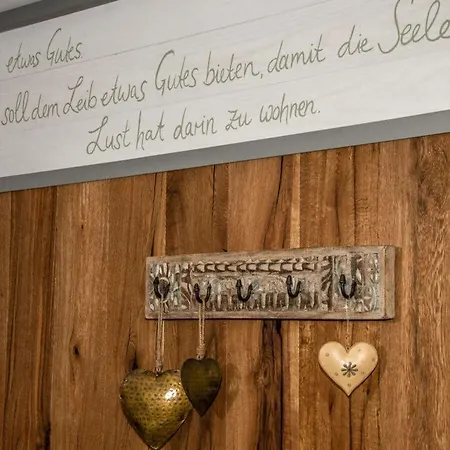 etwas Gutes.
soll dem Leib etwas Gutes bieten, damit die Seele
Lust hat darin zu wohnen.